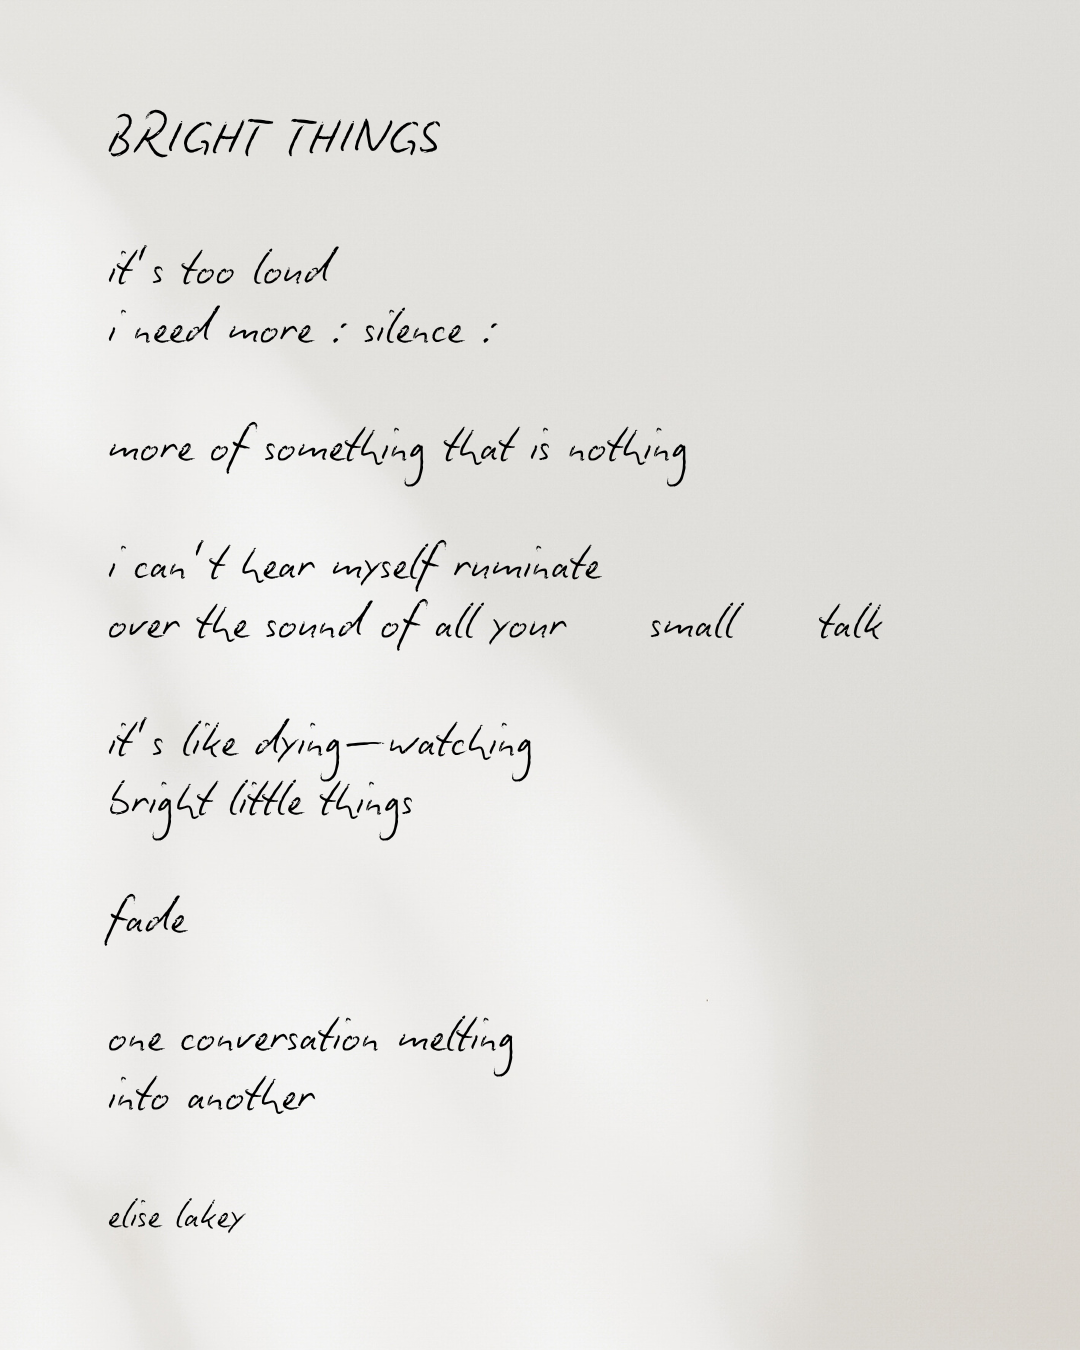 BRIGHT THINGS
it's too loud
i need more : silence :
more of something that is nothing
i can't hear myself ruminate
over the sound of all your small talk
it's like dying—watching
bright little things
fade
one conversation melting
into another
elise lakey